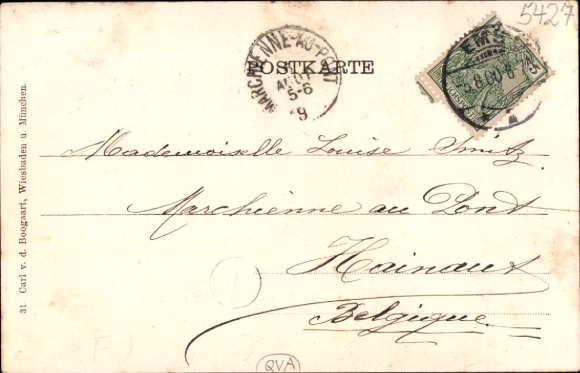 5427
POSTKARTE
MARCHIENNE-AU-PONT
5-6
9
EMS
Mademoiselle Louise Smitz
Marchienne au Pont
Hainaut
Belgique.
31 Carl v. d. Boogaart, Wiesbaden u. München.
QVA